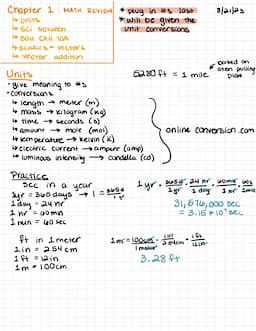 Chapter 1 : MATH REVIEW
↳ units
↳ Sci Notation
↳ Soh CAH TOA
↳ Scalars + vectors
↳ vector addition
* plug in #s last
* will be given the
unit conversions
8/21/23
Units
• give meaning to #s
• conversions
↳ length → meter (m)
↳ mass → kilogram (kg)
↳ time → seconds (s)
↳ amount → mole (mol)
↳ temperature → kelvin (K)
↳ electric current → ampere (amp)
↳ luminous intensity → candella (cd)
5280 ft = 1 mile
based on
oxen pulling
plow
online conversion.com
Practice
sec in a year
1 day = 24 hr
1 hr = 60 min
1 min = 60 sec
31,536,000 sec
= 3.15 × 10⁷ sec
ft in 1 meter
1 in = 2.54 cm
1 ft = 12 in
1 m = 100 cm
3.28 ft